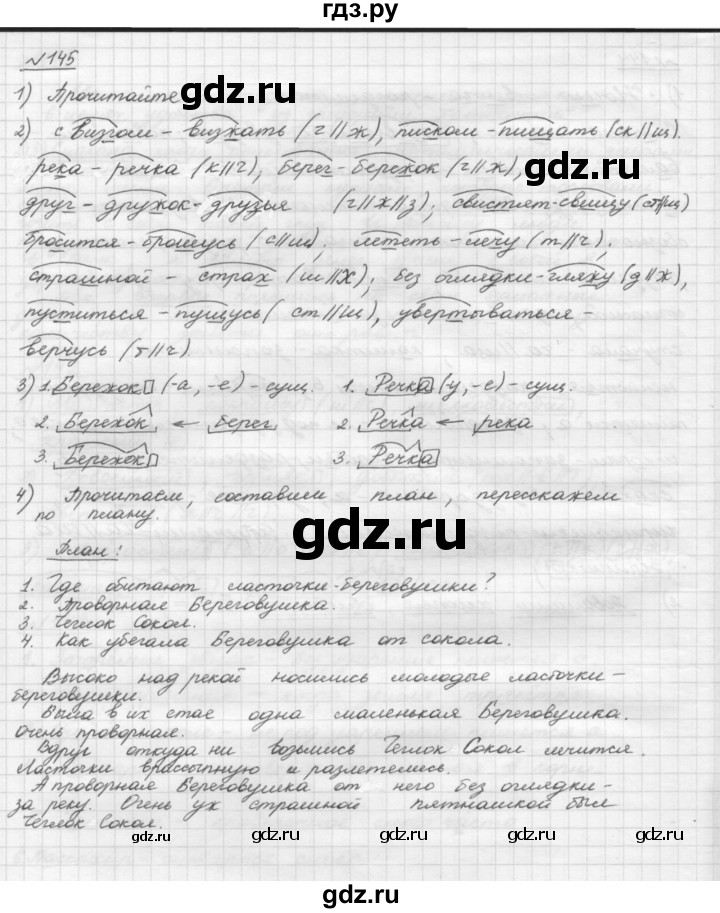 гдз.ру
№145
1) Прочитайте
gdz.ru
2) с визгом - визжать (г//ж), писком - пищать (ск//щ).
река - речка (к//ч), берег - бережок (г//ж),
друг - дружок - друзья (г//ж//з), свистят - свищу (ст//щ)
бросится - брошусь (с//ш), лететь - лечу (т//ч),
страшной - страх (ш//х), без оглядки - гляжу (д//ж),
пуститься - пущусь (ст//щ), увертываться -
верчусь (т//ч).
3) 1. Бережок (-а, -е) - сущ. 1. Речка (-у, -е) - сущ.
2. Бережок ← берег 2. Речка ← река
3. Бережок 3. Речка
4) Прочитаем, составим план, перескажем
по плану.
gdz.ru
План:
1. Где обитают ласточки-береговушки?
2. Проворная Береговушка.
3. Чеглок Сокол.
4. Как убегала Береговушка от сокола.
Высоко над рекой носились молодые ласточки-
береговушки.
Была в их стае одна маленькая Береговушка.
Очень проворная.
Вдруг откуда ни возьмись Чеглок Сокол мчится.
Ласточки врассыпную и разлетелись.
А проворная Береговушка от него без оглядки -
за реку. Очень уж страшной пятнашкой был
Чеглок Сокол.
gdz.ru gdz.ru gdz.ru
gdz.ru